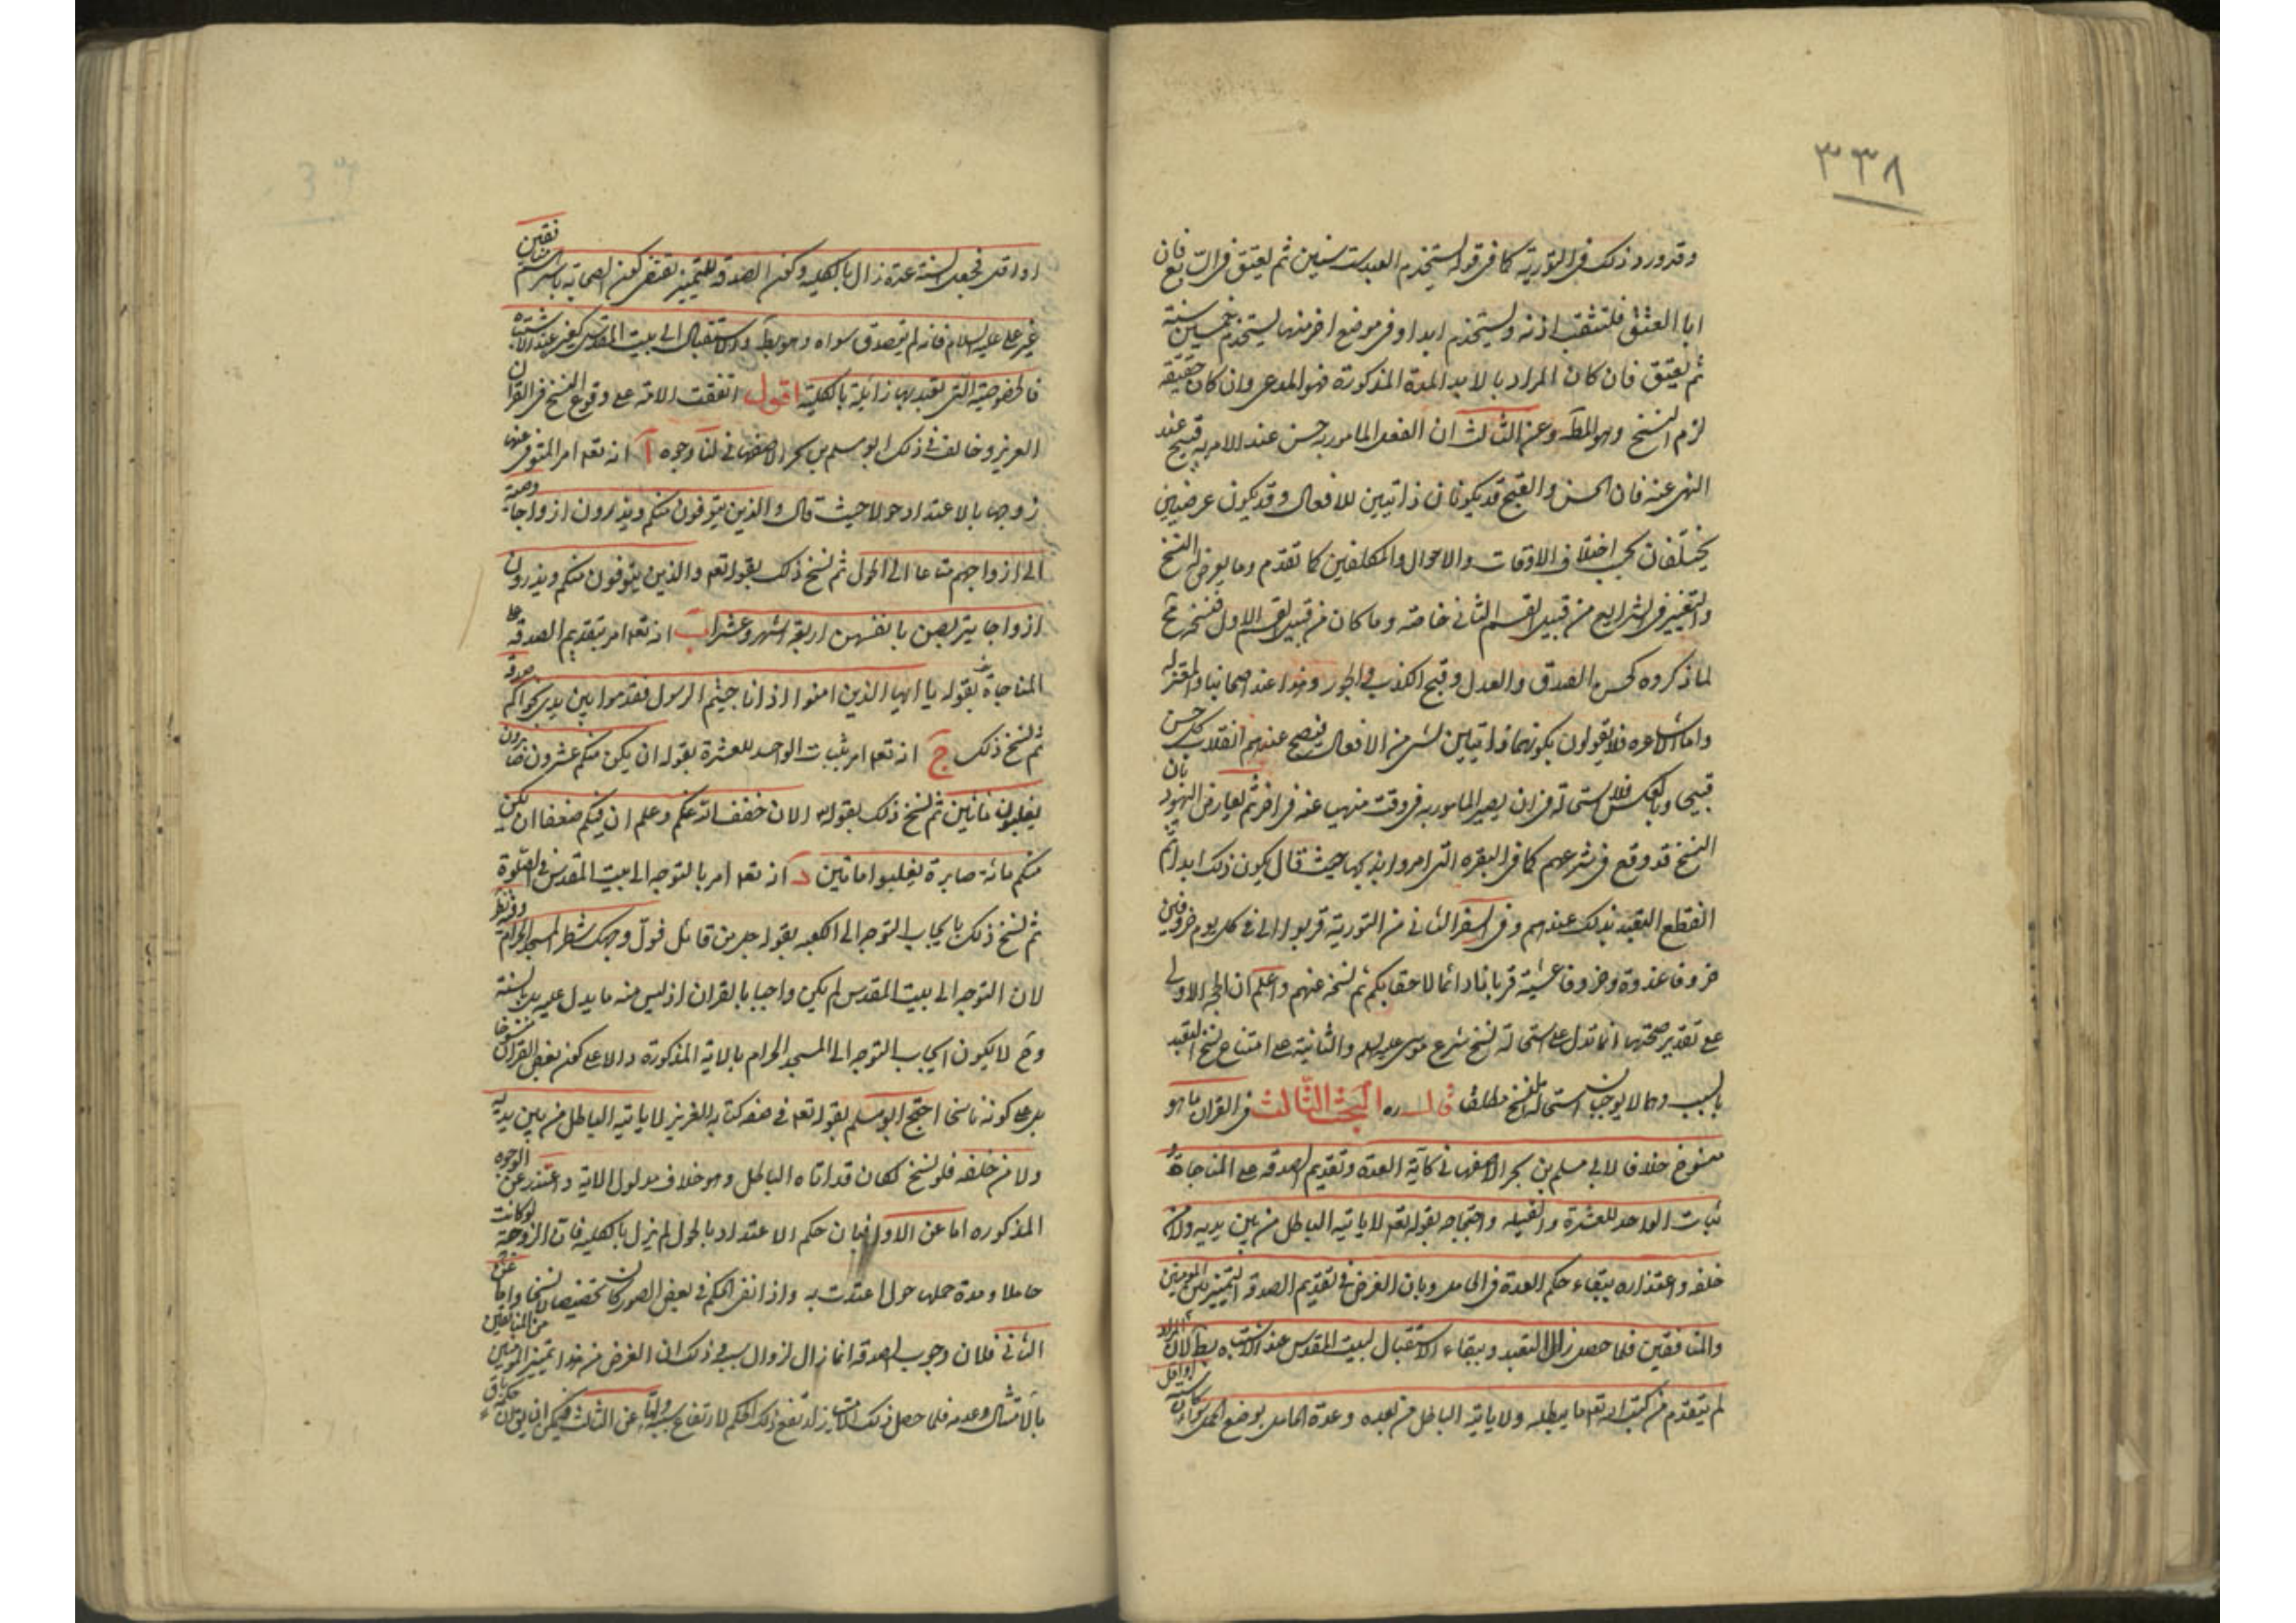 ٣٣٨
وقد ورد ذلك فى التورية كما فى قوله يستخدم العبد ست سنين ثم يعتق فى السابع فان
ابا العتق فلتثقب اذنه ويستخدم ابدا وفى موضع اخر منها يستخدم خمسين سنة
ثم يعتق فان كان المراد بالابد المدة المذكورة فهو المدعى وان كان حقيقة
لزم النسخ وهو المط وعن الثالث ان الفعل المامور به حسن عند الامر به قبيح عند
النهى عنه فان الحسن والقبح قد يكونان ذاتيين للافعال وقد يكون عرضيين
يختلفان بحسب اختلاف الاوقات والاحوال والمكلفين كما تقدم وما يعرض له النسخ
والتغيير فى الشرايع من قبيل القسم الثانى خاصة وما كان من قبيل القسم الاول فنسخه مح
لما ذكروه كحسن الصدق والعدل وقبح الكذب والجور وهذا عند اصحابنا والمعتزله
واما الاشاعره فلا يقولون بكونهما ذاتيين لشى من الافعال فيصح عندهم انقلاب كل حسن
قبيحا وبالعكس فلا استحالة فى ان يصير المامور به فى وقت منهيا عنه فى اخر ثم يعارض اليهود بان
النسخ قد وقع فى شرعهم كما فى البقره التى امروا بذبحها حيث قال يكون ذلك ابدا ثم
انقطع التعبد بذلك عندهم وفى السفر الثانى من التورية قربوا الى فى كل يوم خروفين
خروفا غدوة وخروفا عشية قربانا دائما لاحقابكم ثم نسخه عنهم واعلم ان الحجة الاولى
على تقدير صحتها انما تدل على استحالة نسخ شرع موسى عليه السلم والثانية على امتناع نسخ التعبد
بالسبت وهما لا يوجبان استحالة النسخ مطلقا قال ره البحث الثالث فى القران ما هو
منسوخ خلافا لابى مسلم بن بحر الاصفهانى كآية العدة وتقديم الصدقه على المناجاة و
ثبات الواحد للعشرة والقبله واحتجاجه بقوله تعه لا ياتيه الباطل من بين يديه ولا من
خلفه واعتذاره ببقاء حكم العدة فى الحامل وبان الغرض فى تقديم الصدقه التمييز بين المومنين
والمنافقين فلما حصل زال التعبد وببقاء الاستقبال لبيت المقدس عند الاشتباه بط لان المراد
لم يتقدم من كتب الله تعه ما يبطله ولا ياتيه الباطل من بعده وعدة الحامل بوضع الحمل سواء كان سنة او اقل
او اقل فجعل السنة عدة زال بالكليه وكون الصدقه للتمييز يقتضى كون الصحابه باسرهم منافقين
غير على عليه السلام فانه لم يتصدق سواه وهو بط والاستقبال الى بيت المقدس كغيره عند الاشتباه
فالخصوصية التى تعبد بها زائلة بالكلية اقول اتفقت الامة على وقوع النسخ فى القران
العزيز وخالف فى ذلك ابو مسلم بن بحر الاصفهانى لنا وجوه آ انه تعه امر المتوفى عنها
زوجها بالاعتداد حولا حيث قال والذين يتوفون منكم ويذرون ازواجا وصية
الى ازواجهم متاعا الى الحول ثم نسخ ذلك بقوله تعه والذين يتوفون منكم ويذرون
ازواجا يتربصن بانفسهن اربعة اشهر وعشرا ب انه تعه امر بتقديم الصدقة على
المناجاة بقوله يا ايها الذين امنوا اذا ناجيتم الرسول فقدموا بين يدى نجواكم صدقة
ثم نسخ ذلك ج انه تعه امر بثبات الواحد للعشرة بقوله ان يكن منكم عشرون صابرون
يغلبون مائتين ثم نسخ ذلك بقوله الان خفف الله عنكم وعلم ان فيكم ضعفا ان يكن
منكم مائة صابرة يغلبوا مائتين د انه تعه امر بالتوجه الى بيت المقدس فى الصلوة
ثم نسخ ذلك بايجاب التوجه الى الكعبه بقوله جل من قائل فول وجهك شطر المسجد الحرام وفيه نظر
لان التوجه الى بيت المقدس لم يكن واجبا بالقران اذ ليس منه ما يدل عليه بل بالسنة
وح لا يكون ايجاب التوجه الى المسجد الحرام بالاية المذكورة دالا على كون بعض القران منسوخا
بل على كونه ناسخا احتج ابو مسلم بقوله تعه فى صفه كتابه العزيز لا ياتيه الباطل من بين يديه
ولا من خلفه فلو نسخ لكان قد اتاه الباطل وهو خلاف مدلول الاية واعتذر عن الوجوه
المذكوره اما عن الاول فبان حكم الاعتداد بالحول لم يزل بالكليه فان الزوجة لو كانت
حاملا ومدة حملها حول اعتدت به واذا انقى الحكم فى بعض الصور كان تخصيصا لا نسخا واما عن
الثانى فلان وجوب الصدقه انما زال لزوال سببه وذلك ان الغرض من هذا تمييز المومنين من المنافقين
بالامتثال وعدمه فلما حصل ذلك الامتياز ارتفع ذلك الحكم لارتفاع سببه واما عن الثالث فيمكن ان يق بان حكمه باق